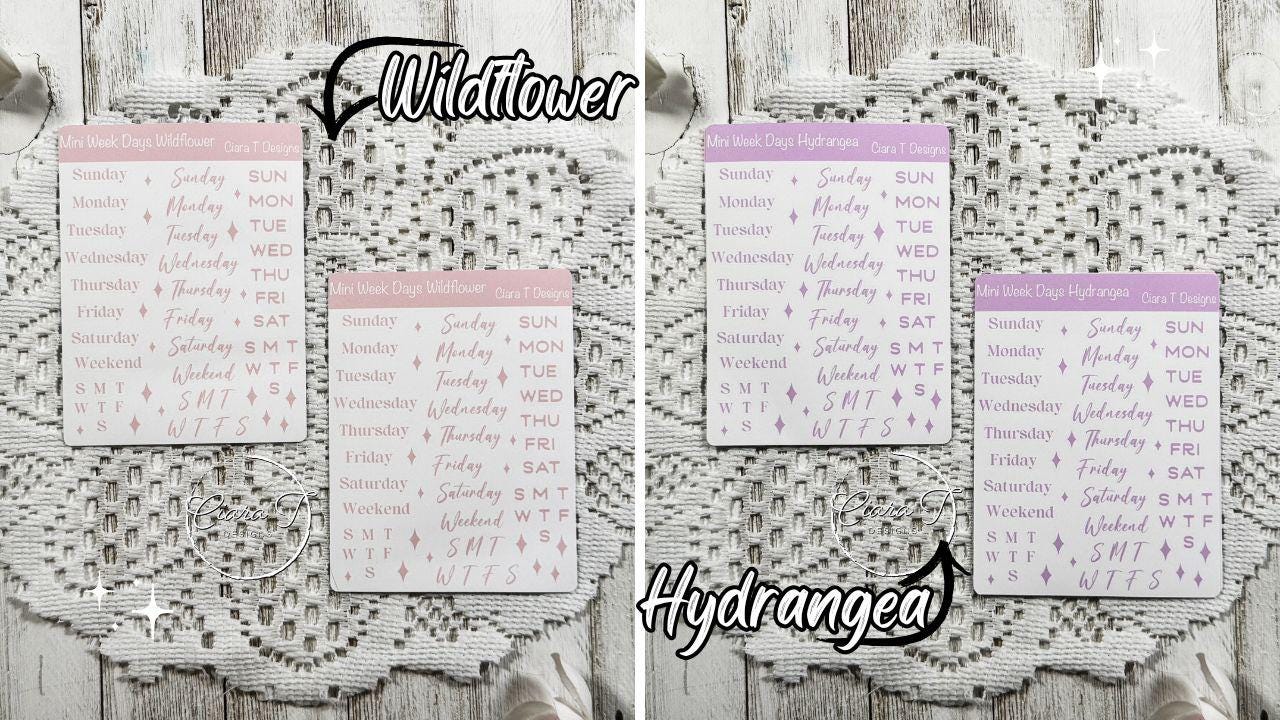 Wildflower
Mini Week Days Wildflower Ciara T Designs
Sunday Sunday SUN
Monday Monday MON
Tuesday Tuesday TUE
Wednesday Wednesday WED
Thursday Thursday THU
Friday Friday FRI
Saturday Saturday SAT
Weekend Weekend S M T
S M T S M T W T F
W T F W T F S S
S
Mini Week Days Wildflower Ciara T Designs
Sunday Sunday SUN
Monday Monday MON
Tuesday Tuesday TUE
Wednesday Wednesday WED
Thursday Thursday THU
Friday Friday FRI
Saturday Saturday SAT
Weekend Weekend S M T
S M T S M T W T F
W T F W T F S S
S
Ciara T
DESIGNS
Mini Week Days Hydrangea Ciara T Designs
Sunday Sunday SUN
Monday Monday MON
Tuesday Tuesday TUE
Wednesday Wednesday WED
Thursday Thursday THU
Friday Friday FRI
Saturday Saturday SAT
Weekend Weekend S M T
S M T S M T W T F
W T F W T F S S
S
Mini Week Days Hydrangea Ciara T Designs
Sunday Sunday SUN
Monday Monday MON
Tuesday Tuesday TUE
Wednesday Wednesday WED
Thursday Thursday THU
Friday Friday FRI
Saturday Saturday SAT
Weekend Weekend S M T
S M T S M T W T F
W T F W T F S S
S
Ciara T
DESIGNS
Hydrangea